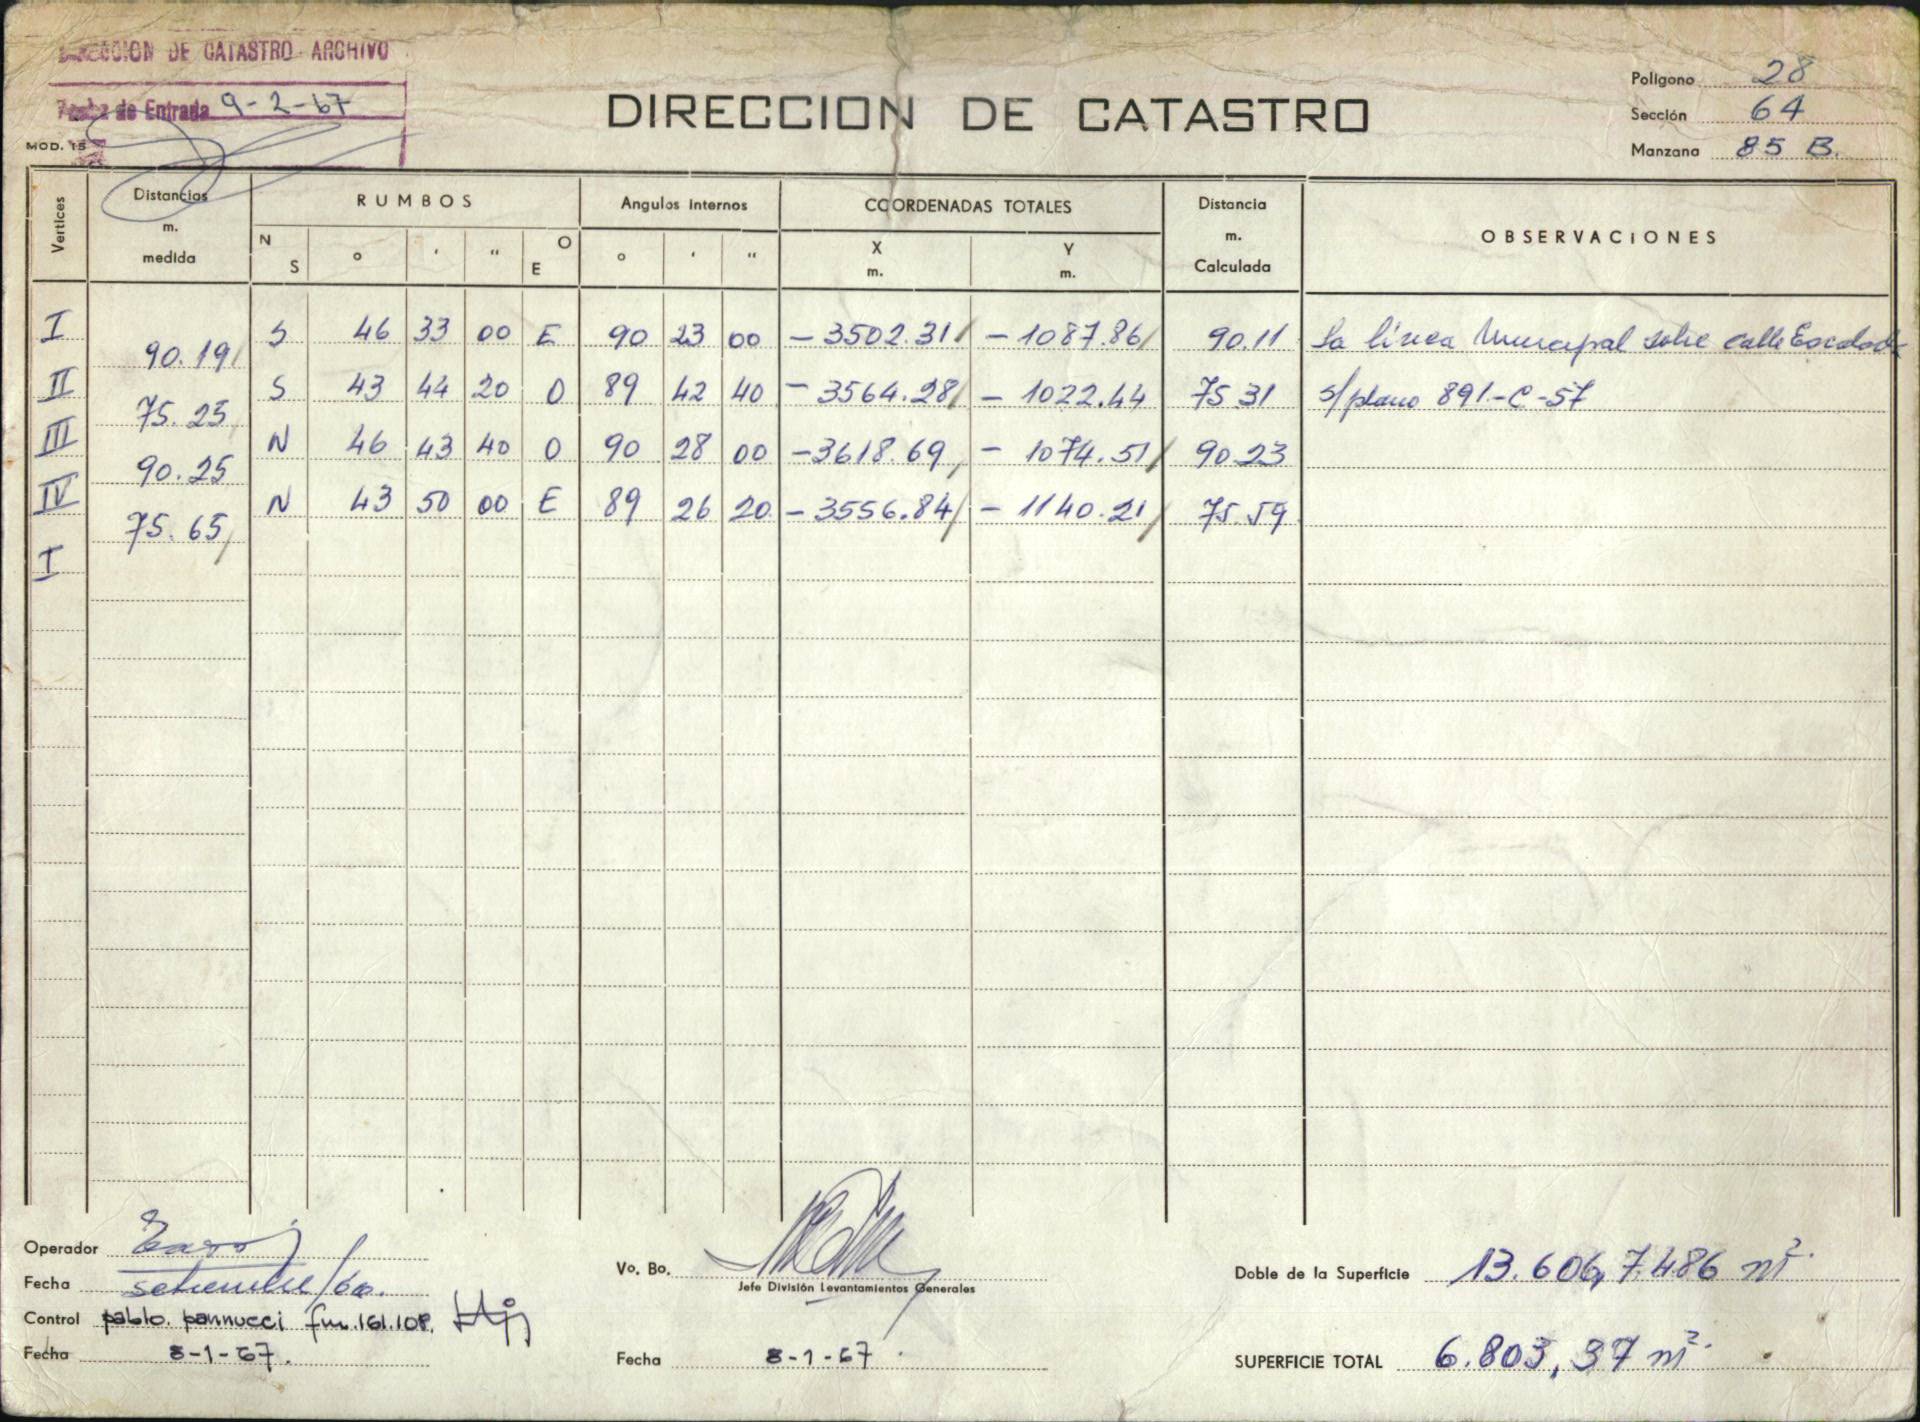 DIRECCION DE CATASTRO ARCHIVO
Fecha de Entrada 9-2-67
MOD. 15
DIRECCION DE CATASTRO
Polígono 28
Sección 64
Manzana 85 B.
Vertices Distancias m. medida RUMBOS Angulos internos COORDENADAS TOTALES Distancia m. Calculada OBSERVACIONES
N S ° ' " O E ° ' " X m. Y m.
I S 46 33 00 E 90 23 00 -3502.31 -1087.86 90.11 La línea Municipal sobre calle Escalada
90.19
II S 43 44 20 O 89 42 40 -3564.28 -1022.44 75 31 s/plano 891.-C-57
75.25
III N 46 43 40 O 90 28 00 -3618.69 -1074.51 90.23
90.25
IV N 43 50 00 E 89 26 20 -3556.84 -1140.21 75.59
75.65
I
Operador
Fecha setiembre/60.
Control pablo. pannucci fm.161.108.
Fecha 8-1-67.
Vo. Bo.
Jefe División Levantamientos Generales
Fecha 8-1-67.
Doble de la Superficie 13.606,7.486 m².
SUPERFICIE TOTAL 6.803,37 m².